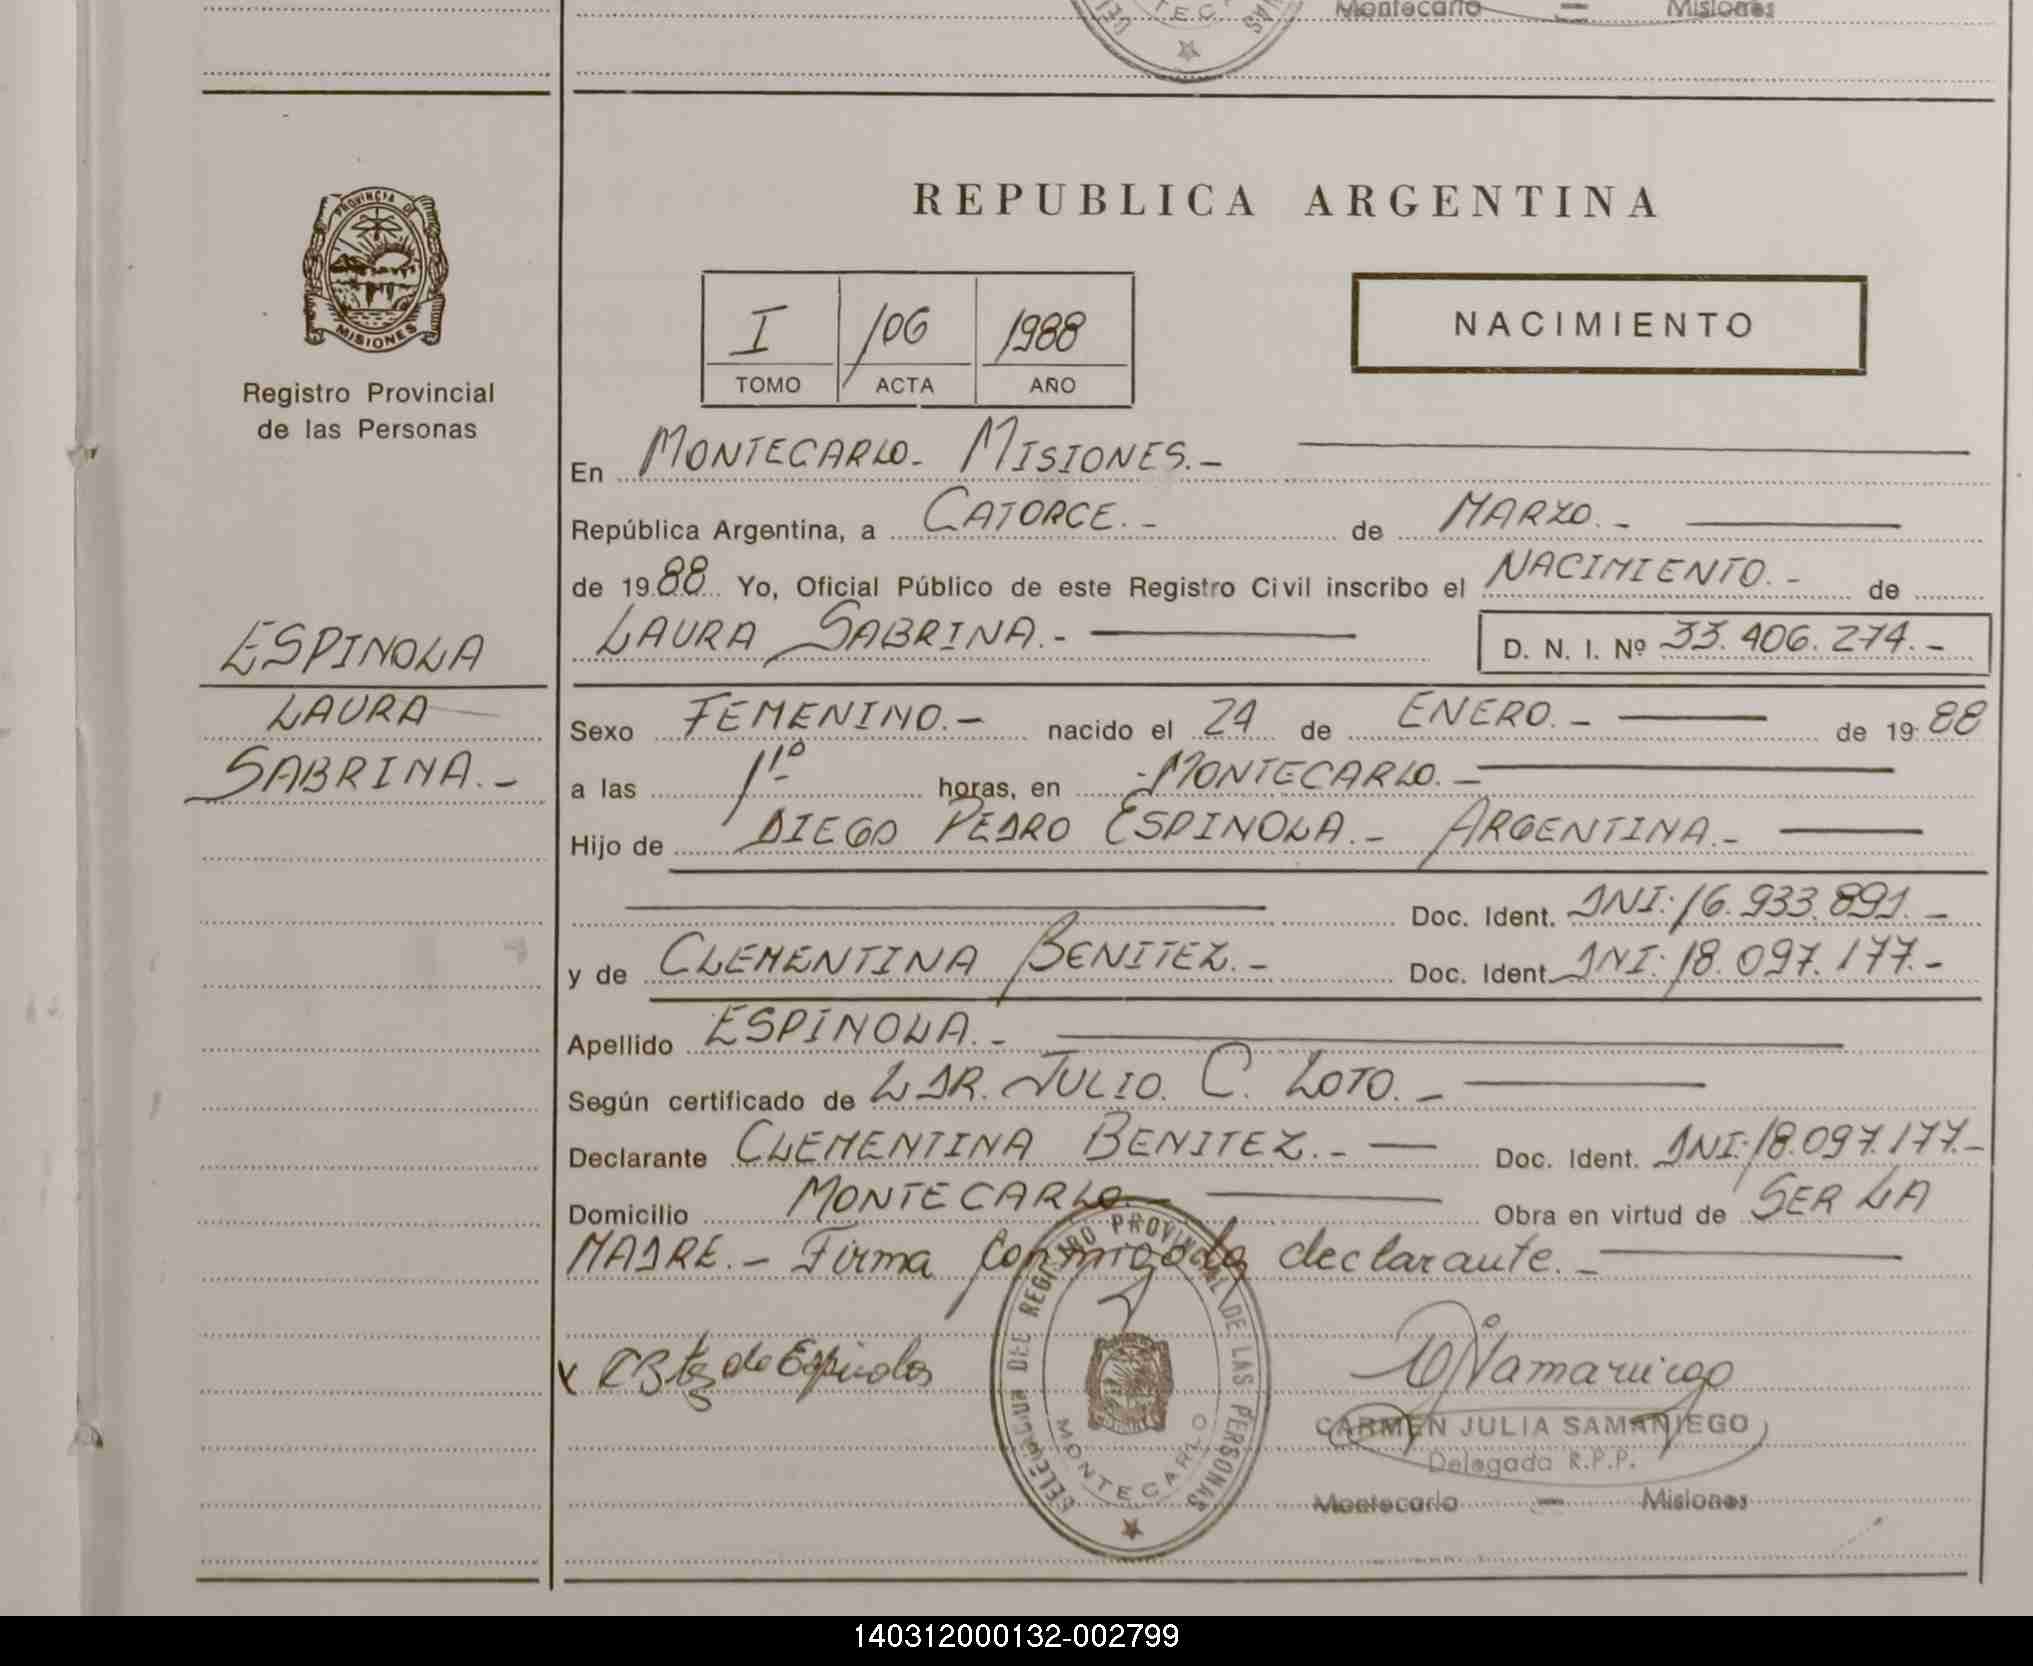 Montecarlo — Misiones
REPUBLICA ARGENTINA
PROVINCIA DE
MISIONES
Registro Provincial
de las Personas
I 106 1988
TOMO ACTA AÑO
NACIMIENTO
En MONTECARLO- MISIONES.-
República Argentina, a CATORCE.- de MARZO.-
de 1988 Yo, Oficial Público de este Registro Civil inscribo el NACIMIENTO.- de
LAURA SABRINA.- D. N. I. Nº 33.406.274.-
ESPINOLA
LAURA
SABRINA.-
Sexo FEMENINO.- nacido el 24 de ENERO.- de 1988
a las 11º horas, en MONTECARLO.-
Hijo de DIEGO PEDRO ESPINOLA.- ARGENTINA.-
Doc. Ident. DNI: 16.933.891.-
y de CLEMENTINA BENITEZ.- Doc. Ident. DNI: 18.097.177.-
Apellido ESPINOLA.-
Según certificado de L DR. JULIO. C. LOTO.-
Declarante CLEMENTINA BENITEZ.- Doc. Ident. DNI: 18.097.177.-
Domicilio MONTECARLO.- Obra en virtud de SER LA
MADRE.- Firma conmigo la declarante.-
x CBtez de Espinola
REGISTRO PROVINCIAL DE LAS PERSONAS
MONTECARLO
CARMEN JULIA SAMANIEGO
Delegada R.P.P.
Montecarlo — Misiones
140312000132-002799